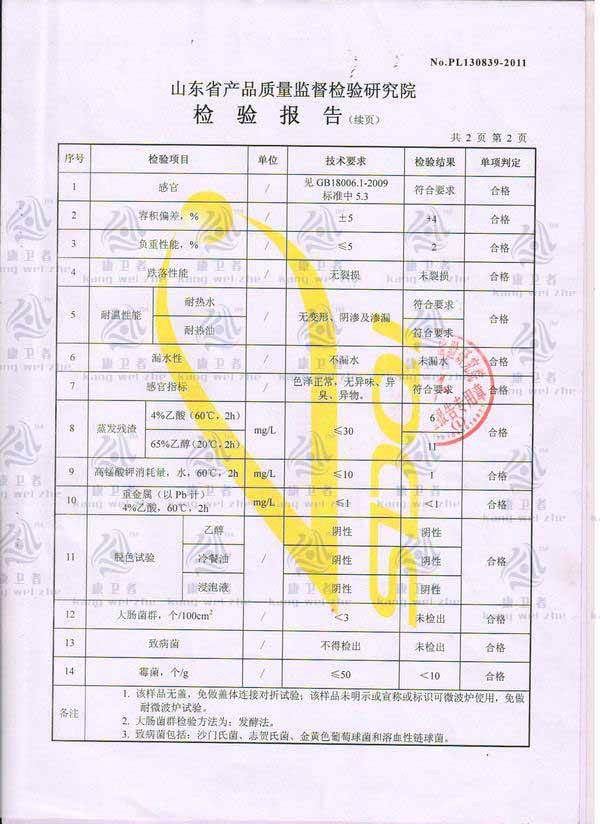 No.PL130839-2011
山东省产品质量监督检验研究院
检 验 报 告（续页）
共 2 页 第 2 页
序号 检验项目 单位 技术要求 检验结果 单项判定
1 感官 / 见 GB18006.1-2009 标准中 5.3 符合要求 合格
2 容积偏差，% / ±5 +4 合格
3 负重性能，% / ≤5 2 合格
4 跌落性能 / 无裂损 未裂损 合格
5 耐温性能 耐热水 / 无变形、阴渗及渗漏 符合要求 合格
耐热油 符合要求
6 漏水性 / 不漏水 未漏水 合格
7 感官指标 / 色泽正常，无异味、异臭、异物。 符合要求 合格
8 蒸发残渣 4%乙酸（60℃，2h） mg/L ≤30 6 合格
65%乙醇（20℃，2h） 11
9 高锰酸钾消耗量，水，60℃，2h mg/L ≤10 1 合格
10 重金属（以 Pb 计） 4%乙酸，60℃，2h mg/L ≤1 <1 合格
11 脱色试验 乙醇 / 阴性 阴性 合格
冷餐油 阴性 阴性
浸泡液 阴性 阴性
12 大肠菌群，个/100cm² / <3 未检出 合格
13 致病菌 / 不得检出 未检出 合格
14 霉菌，个/g / ≤50 <10 合格
备注
1. 该样品无盖，免做盖体连接对折试验；该样品未明示或宣称或标识可微波炉使用，免做
耐微波炉试验。
2. 大肠菌群检验方法为：发酵法。
3. 致病菌包括：沙门氏菌、志贺氏菌、金黄色葡萄球菌和溶血性链球菌。
康卫者
kang wei zhe
报告专用章
(1)